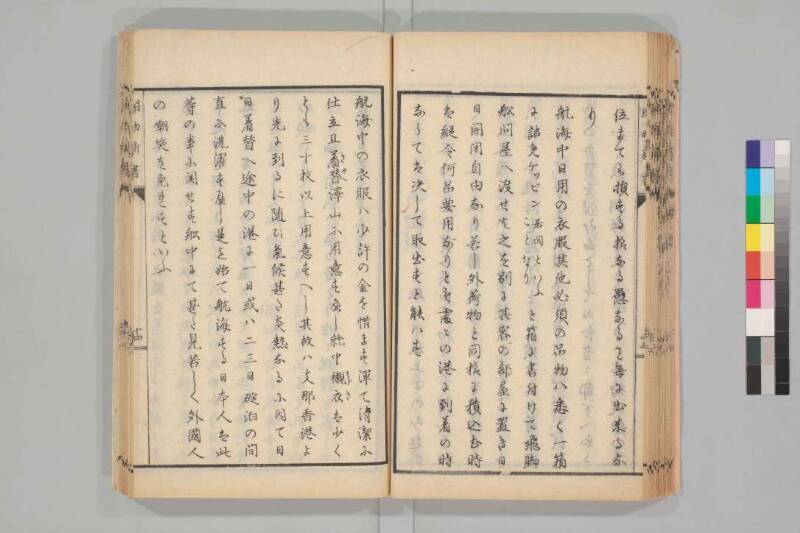 位までも損ずる様なる愚なる事毎に出来るな
り
航海中日用の衣服其他必須の品物ハ悉く一箱
に詰免ケッビン 居間といふことなり と箱に書付けて飛脚
船問屋へ渡せハ之を別に其客の部屋に置き日
日開閉自由なり若し外荷物と同様に積込む時
は縦令何品要用なりとも處々の港に到着の時
ならては決して取出す
航海中の衣服ハ少許の金を惜まず渾て清潔に
仕立且着替澤山に用意すべし就中襯衣は少く
とも三十枚以上用意すべし其故ハ支那香港よ
り先に到るに随ひ気候甚た炎熱なるに因て日
日着替へ途中の港に一日或ハ二三日碇泊の間
直に洗濯すべし是を始て航海する日本人は此
等の事に関せす船中にて甚た見苦しく外國人
の嘲笑を免れずといふ